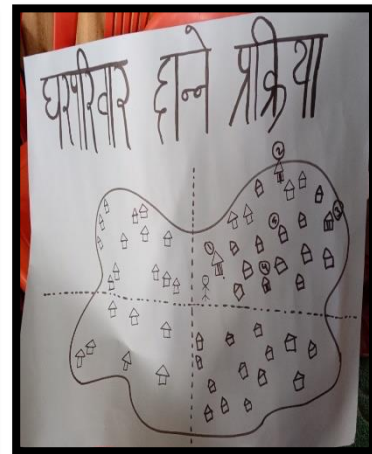 घरपरिवार छान्ने प्रक्रिया
2